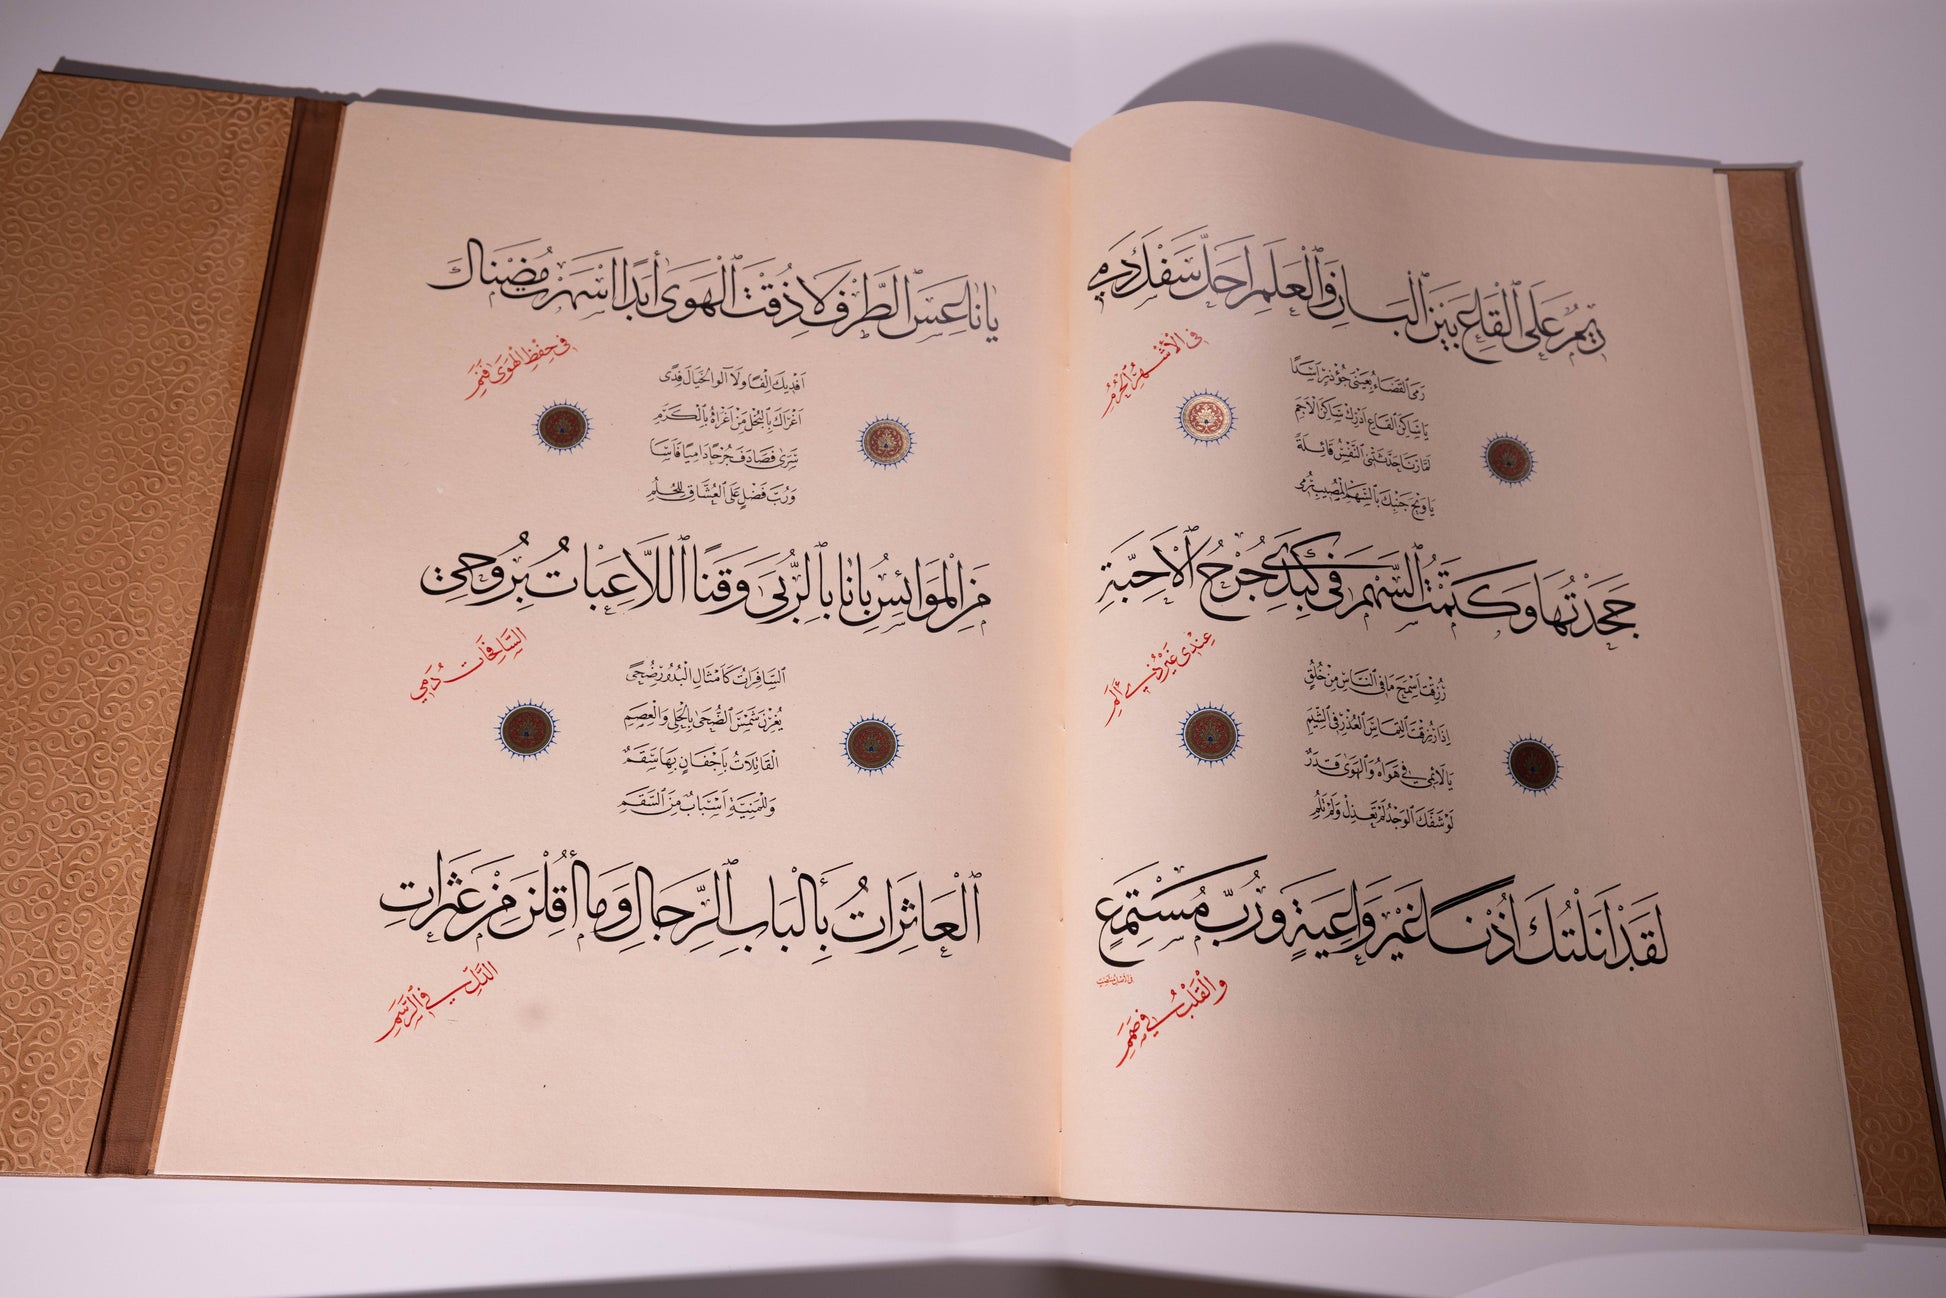 رِيمٌ عَلَى الْقَاعِ بَيْنَ الْبَانِ وَالْعَلَمِ اَحَلَّ سَفْكَ دَمِي
فِي الْأَشْهُرِ الْحُرُمِ
رَمَى الْقَضَاءُ بِعَيْنَيْ جُؤْذَرٍ اَسَدًا
يَا سَاكِنَ الْقَاعِ اَدْرِكْ سَاكِنَ الْاَجَمِ
لَمَّا رَنَا حَدَّثَتْنِي النَّفْسُ قَائِلَةً
يَا وَيْحَ جَنْبِكَ بِالسَّهْمِ الْمُصِيبِ رُمِي
جَحَدْتُهَا وَكَتَمْتُ السَّهْمَ فِي كَبِدِي جُرْحُ الْاَحِبَّةِ
عِنْدِي غَيْرُ ذِي أَلَمِ
رُزِقْتَ اَسْمَحَ مَا فِي النَّاسِ مِنْ خُلُقٍ
اِذَا رُزِقْتَ الْتِمَاسَ الْعُذْرِ فِي الشِّيَمِ
يَا لَائِمِي فِي هَوَاهُ وَالْهَوَى قَدَرٌ
لَوْ شَفَّكَ الْوَجْدُ لَمْ تَعْذِلْ وَلَمْ تَلُمِ
لَقَدْ اَنَلْتُكَ اُذْنًا غَيْرَ وَاعِيَةٍ وَرُبَّ مُسْتَمِعٍ
في الأصل منتصت
وَالْقَلْبُ فِي صَمَمِ
يَا نَاعِسَ الطَّرْفِ لَا ذُقْتَ الْهَوَى أَبَدًا اَسْهَرْتَ مُضْنَاكَ
فِي حِفْظِ الْهَوَى فَنَمِ
اَفْدِيكَ اِلْفًا وَلَا آلُو الْخَيَالَ فِدًى
اَغْرَاكَ بِالْبُخْلِ مَنْ اَغْرَاهُ بِالْكَرَمِ
سَرَى فَصَادَفَ جُرْحًا دَامِيًا فَاَسَا
وَرُبَّ فَضْلٍ عَلَى الْعُشَّاقِ لِلْحُلُمِ
مَنِ الْمَوَائِسُ بَانًا بِالرُّبَى وَقَنًا اللَّاعِبَاتُ بِرُوحِي
السَّافِحَاتُ دَمِي
السَّافِرَاتُ كَاَمْثَالِ الْبُدُورِ ضُحًى
يُغِرْنَ شَمْسَ الضُّحَى بِالْحَلْيِ وَالْعِصَمِ
الْقَاتِلَاتُ بِاَجْفَانٍ بِهَا سَقَمٌ
وَلِلْمَنِيَّةِ اَسْبَابٌ مِنَ السَّقَمِ
الْعَاثِرَاتُ بِأَلْبَابِ الرِّجَالِ وَمَا أُقِلْنَ مِنْ عَثَرَاتِ
الدَّلِّ فِي الرَّسَمِ